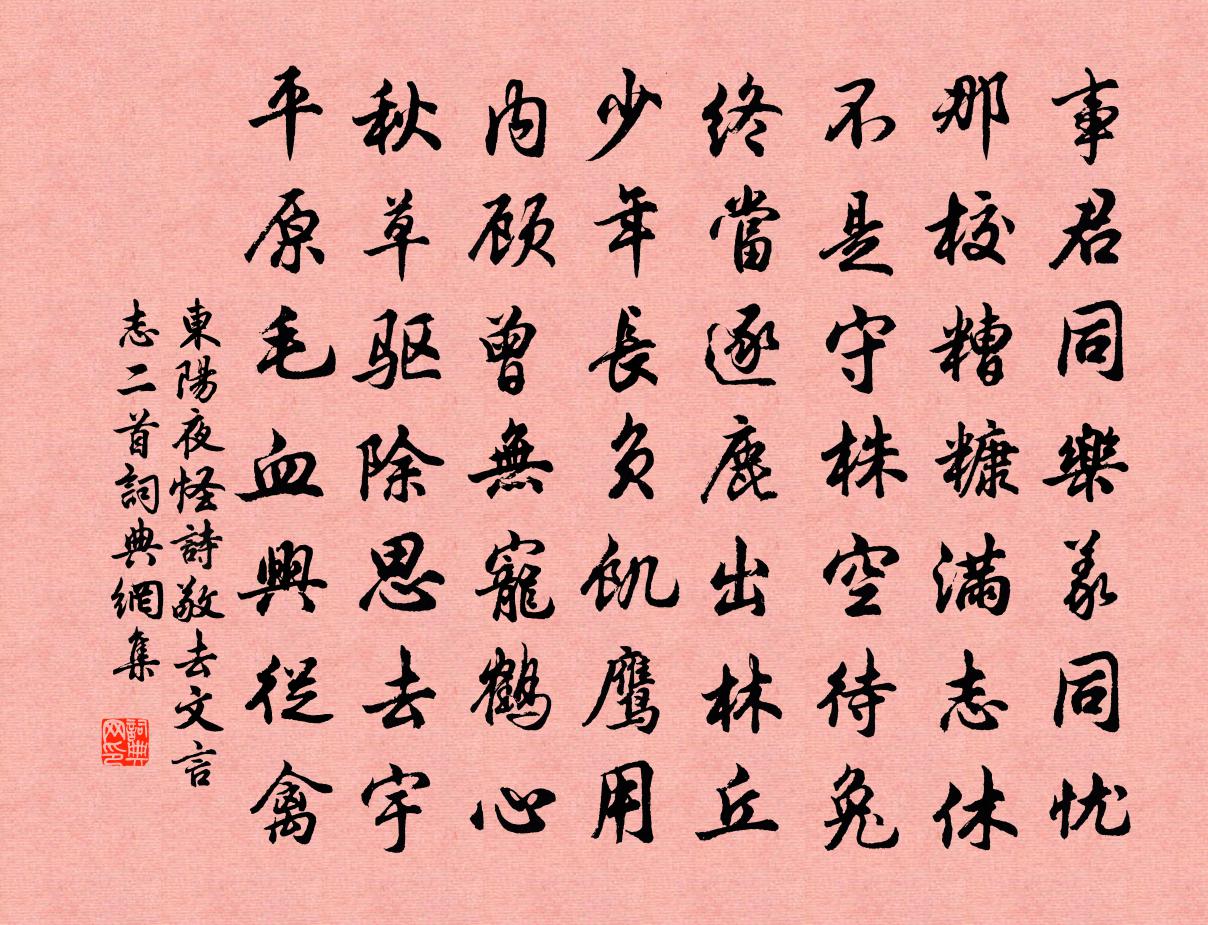 事君同樂義同忧
那校糟糠滿志休
不是守株空待兔
終當逐鹿出林丘
少年長負飢鷹用
内顾曾無寵鶴心
秋草驱除思去宇
平原毛血興從禽
東陽夜怪詩敬去文言
志二首詞典網集
詞典网印